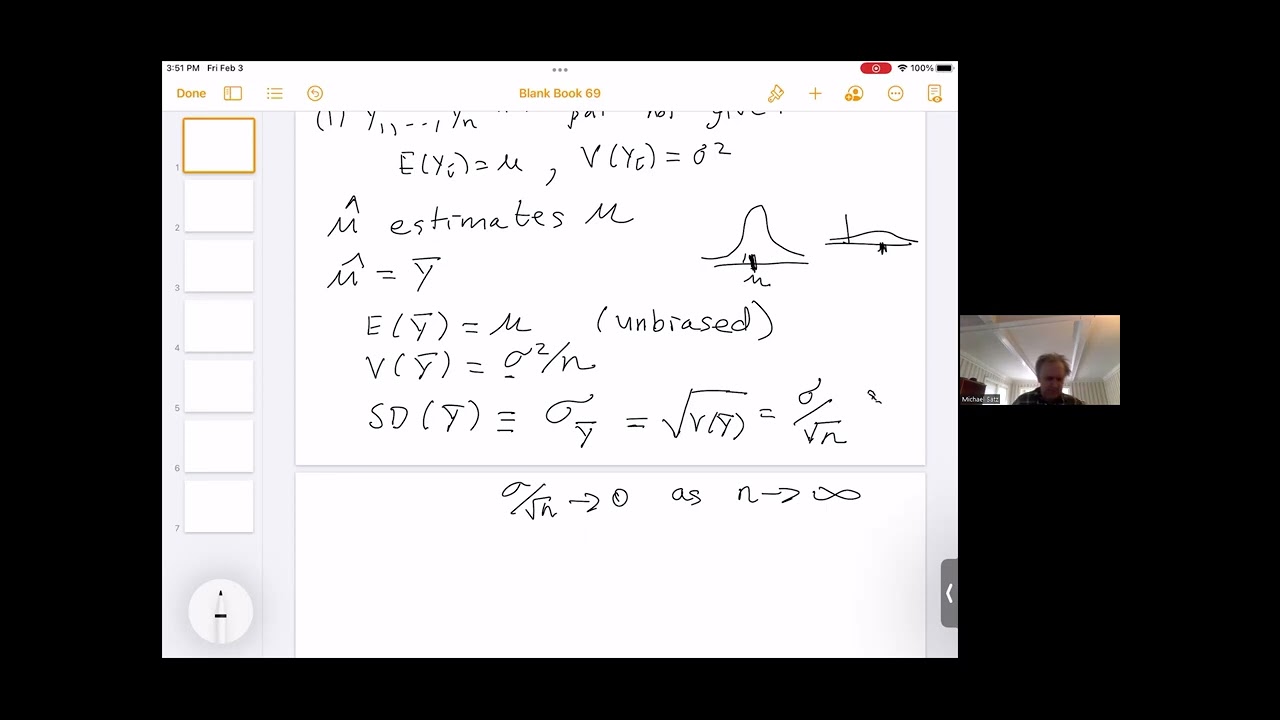 3:51 PM Fri Feb 3
100%
Done
Blank Book 69
(1) Y₁, ..., Yₙ
E(Yᵢ) = μ , V(Yᵢ) = σ²
μ̂ estimates μ
μ̂ = Ȳ
μ
E(Ȳ) = μ (unbiased)
V(Ȳ) = σ²/n
SD(Ȳ) ≡ σ_Ȳ = √V(Ȳ) = σ/√n
σ/√n → 0 as n → ∞
1
2
3
4
5
6
7
Michael Satz